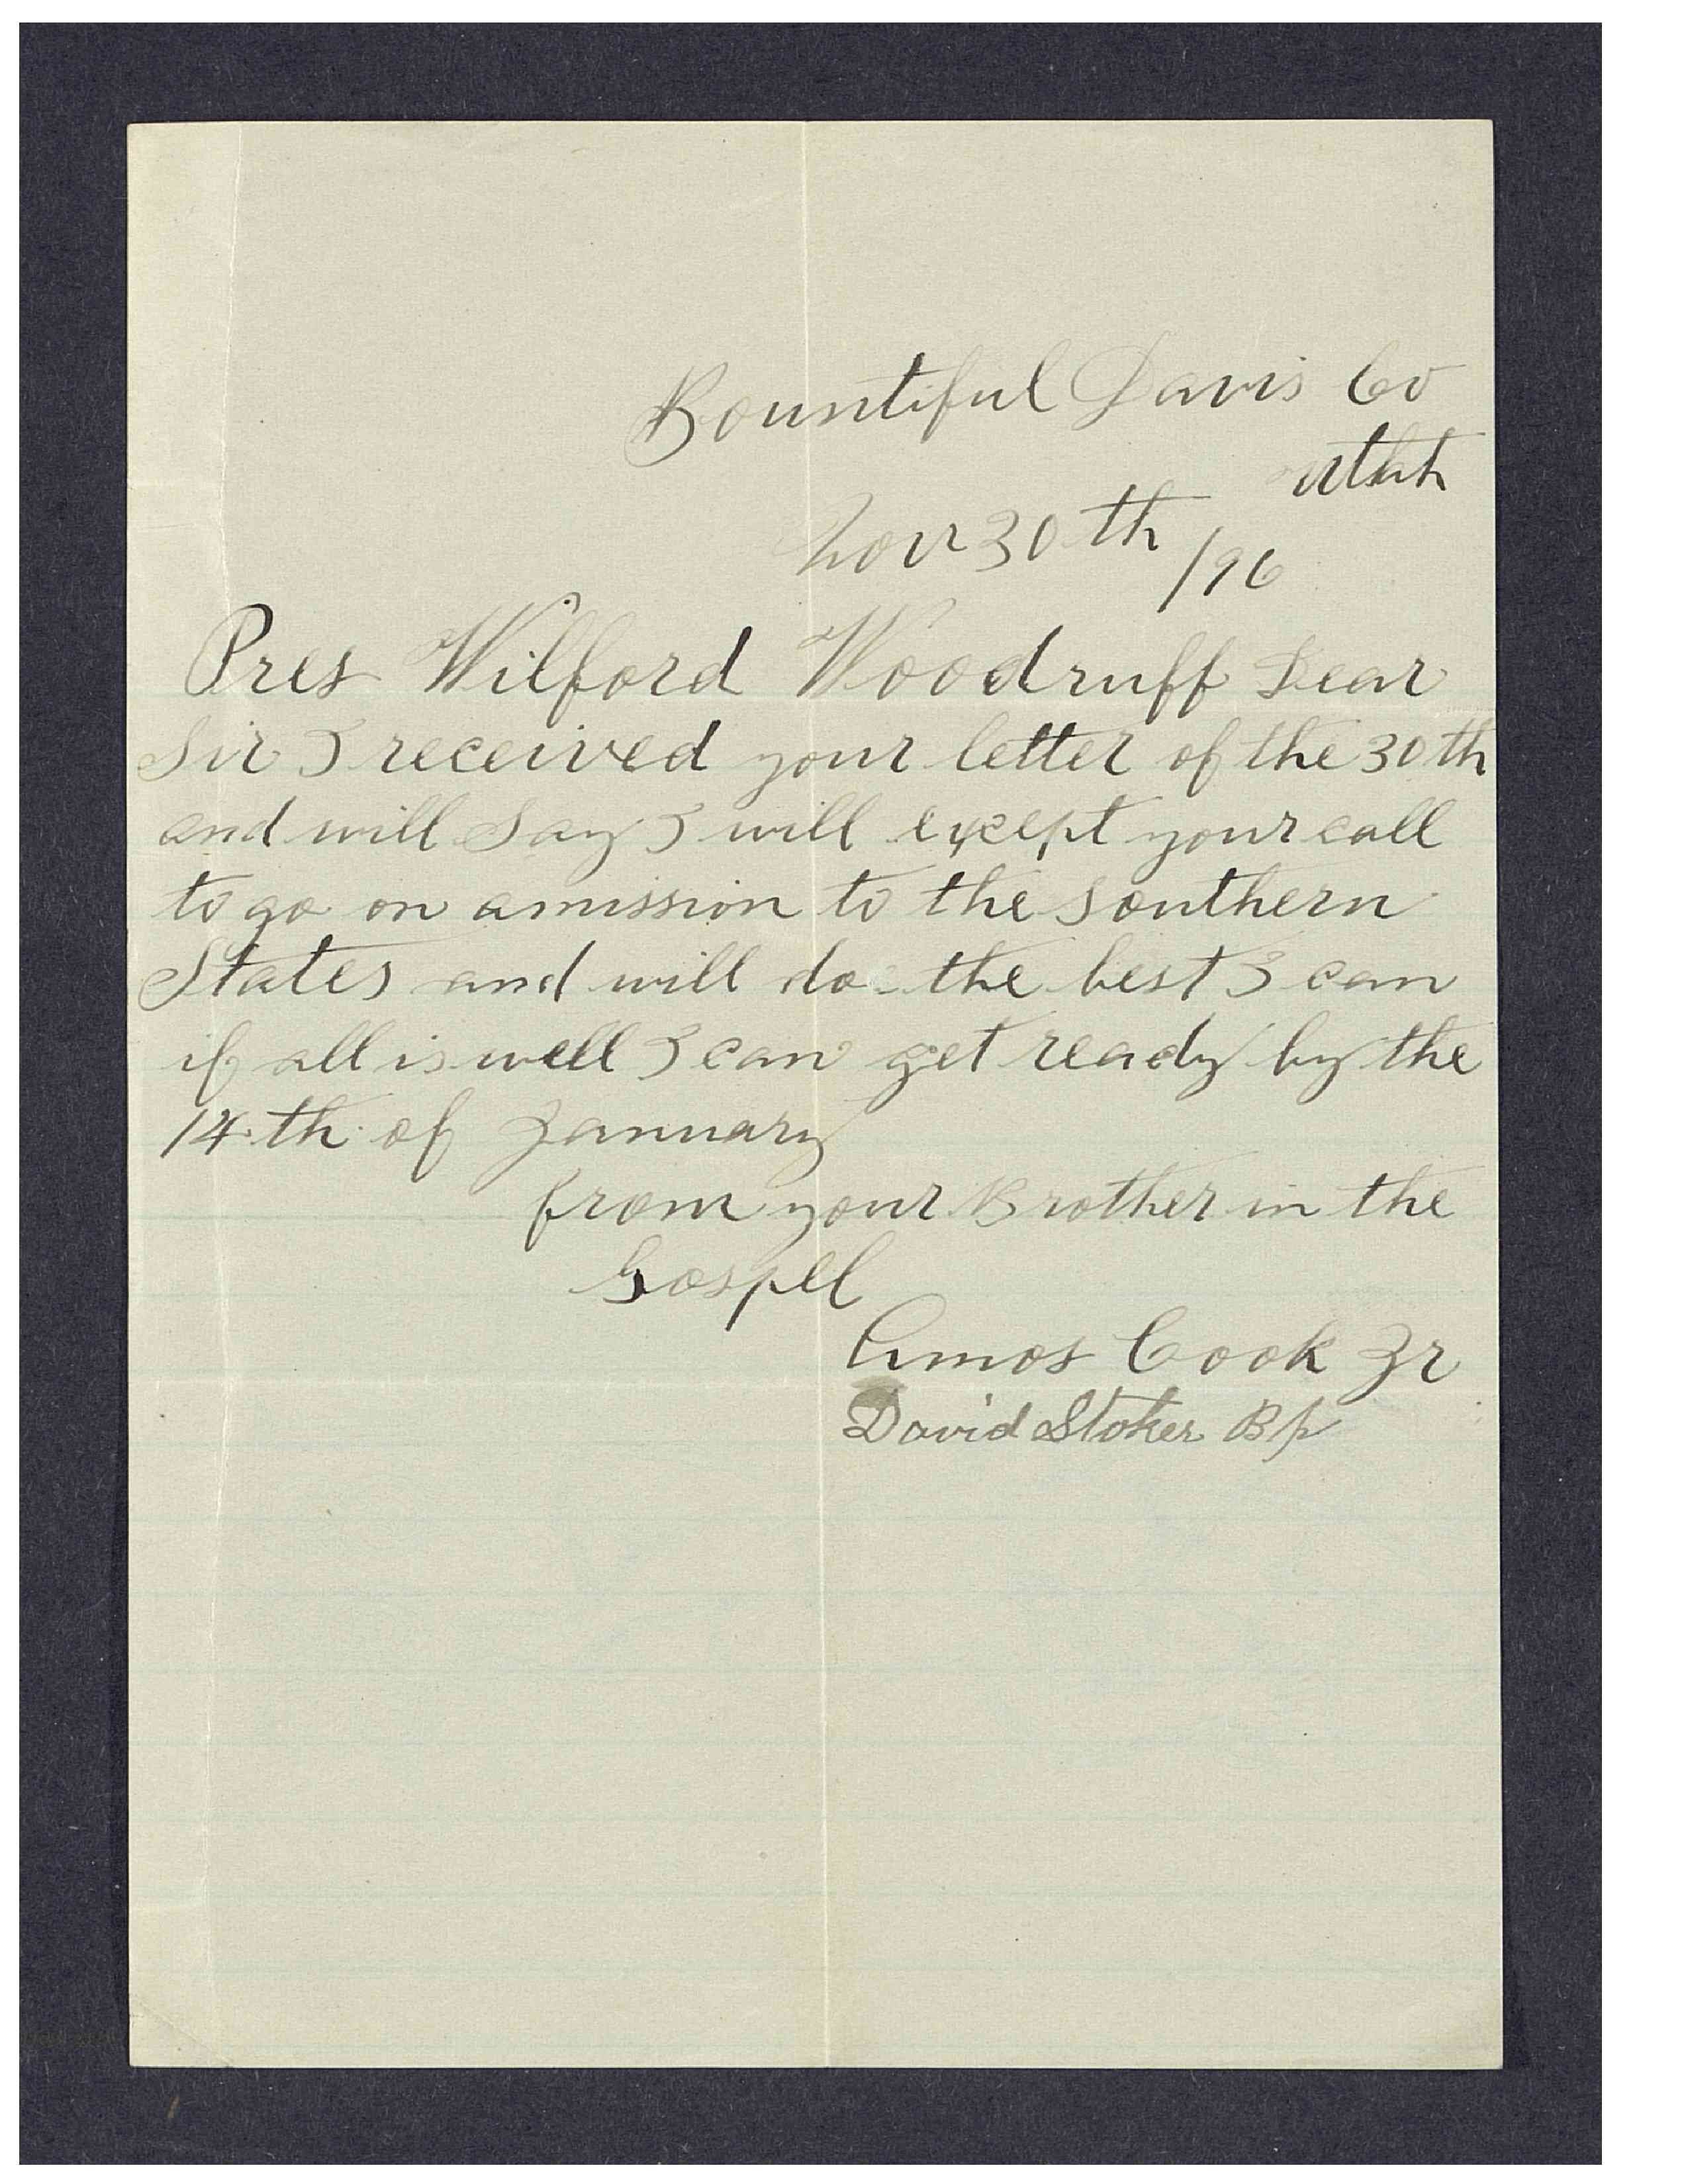 Bountiful Davis Co
utah
Nov 30th /96
Pres Wilford Woodruff Dear
Sir I received your letter of the 30th
and will Say I will except your call
to go on amission to the Southern
States and will do the best I can
if all is well I can get ready by the
14th of January
from your Brother in the
Gospel
Amos Cook Jr
David Stoker Bp